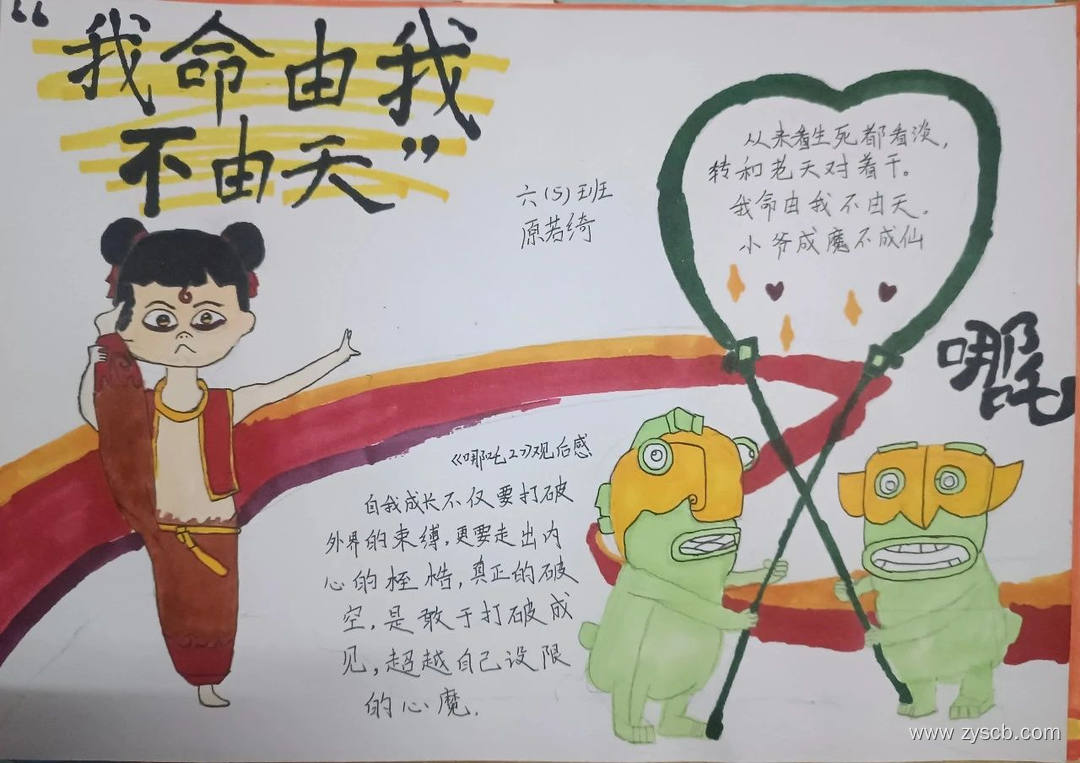 “我命由我
不由天”
六(5)班
原若绮
从来看生死都看淡，
转和老天对着干。
我命由我不由天，
小爷成魔不成仙
哪吒
《哪吒2》观后感
自我成长不仅要打破
外界的束缚，更要走出内
心的桎梏，真正的破
空，是敢于打破成
见，超越自己设限
的心魔.
www.zyscb.com